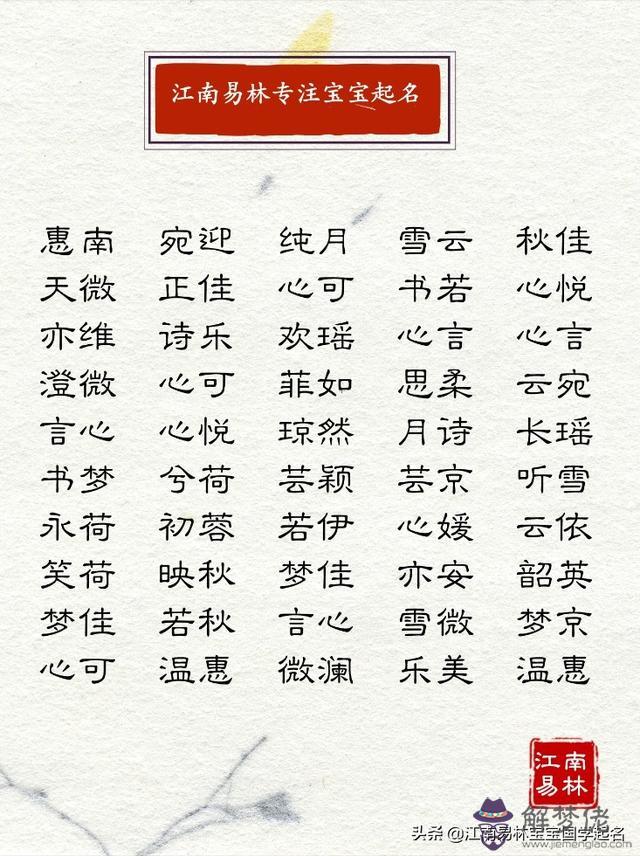 江南易林专注宝宝起名
惠南 宛迎 纯月 雪云 秋佳
天微 正佳 心可 书若 心悦
亦维 诗乐 欢瑶 心言 心言
澄微 心可 菲如 思柔 云宛
言心 心悦 琼然 月诗 长瑶
书梦 兮荷 芸颖 芸京 听雪
永荷 初蓉 若伊 心媛 云依
笑荷 映秋 梦佳 亦安 韶英
梦佳 若秋 言心 雪微 梦京
心可 温惠 微澜 乐美 温惠
江南
易林
解梦佬
www.jiemenglao.com
头条 @江南易林宝宝国学起名